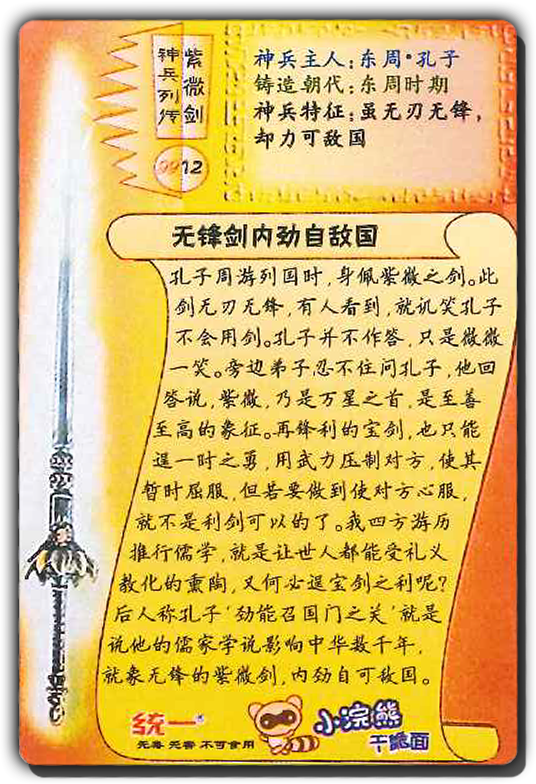 紫微剑
神兵列传
0012
神兵主人：东周·孔子
铸造朝代：东周时期
神兵特征：虽无刃无锋，
却力可敌国
无锋剑内劲自敌国
孔子周游列国时，身佩紫微之剑。此
剑无刃无锋，有人看到，就讥笑孔子
不会用剑。孔子并不作答，只是微微
一笑。旁边弟子忍不住问孔子，他回
答说，紫微，乃是万星之首，是至善
至高的象征。再锋利的宝剑，也只能
逞一时之勇，用武力压制对方，使其
暂时屈服，但若要做到使对方心服，
就不是利剑可以的了。我四方游历
推行儒学，就是让世人都能受礼义
教化的熏陶，又何必逞宝剑之利呢？
后人称孔子‘劲能召国门之关’就是
说他的儒家学说影响中华数千年，
就象无锋的紫微剑，内劲自可敌国。
统一
无毒 无害 不可食用
小浣熊
干脆面